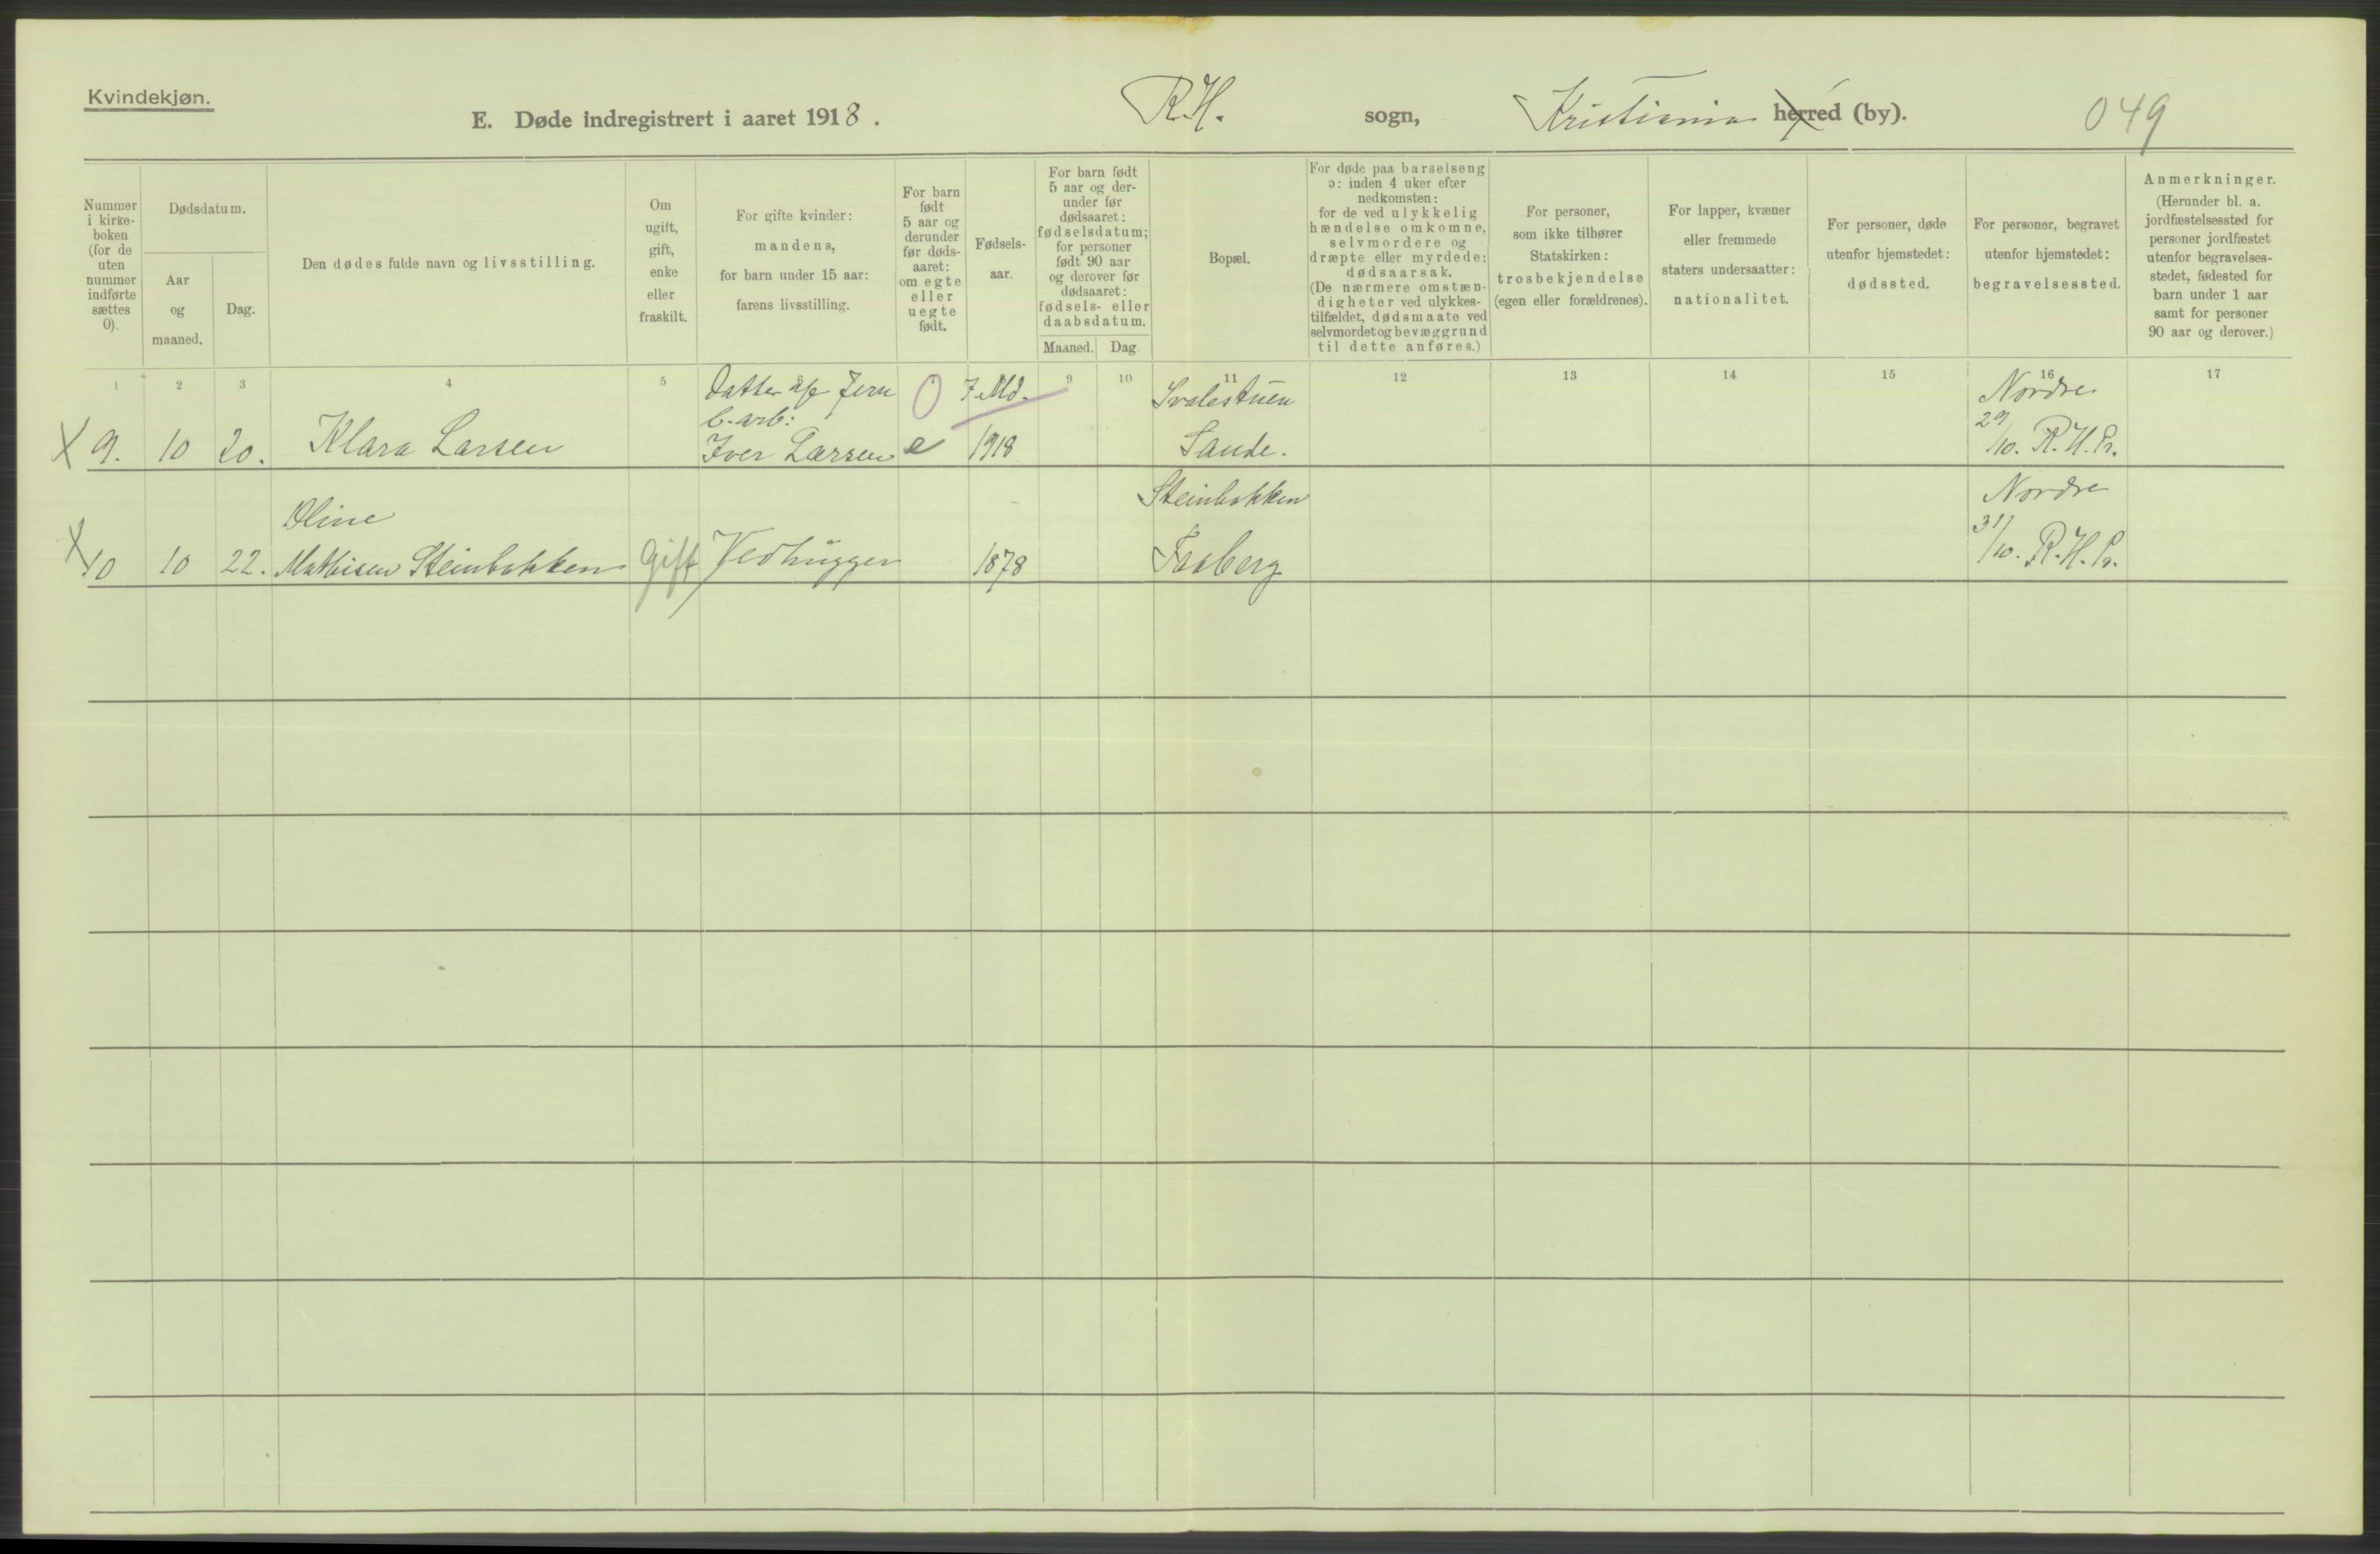 Kvindekjøn.
E. Døde indregistrert i aaret 1918. R.H. sogn, Kristiania herred (by). 049
Nummer
i kirke-
boken
(for de
uten
nummer
indførte
sættes
0).
Dødsdatum.
Aar
og
maaned.
Dag.
Den dødes fulde navn og livsstilling.
Om
ugift,
gift,
enke
eller
fraskilt.
For gifte kvinder:
mandens,
for barn under 15 aar:
farens livsstilling.
For barn
født
5 aar og
derunder
før døds-
aaret:
om egte
eller
uegte
født.
Fødsels-
aar.
For barn født
5 aar og der-
under før
dødsaaret:
fødselsdatum;
for personer
født 90 aar
og derover før
dødsaaret:
fødsels- eller
daabsdatum.
Maaned. Dag.
Bopæl.
For døde paa barselseng
ɔ: inden 4 uker efter
nedkomsten:
for de ved ulykkelig
hændelse omkomne,
selvmordere og
dræpte eller myrdede:
dødsaarsak.
(De nærmere omstæn-
digheter ved ulykkes-
tilfældet, dødsmaate ved
selvmordet og bevæggrund
til dette anføres.)
For personer,
som ikke tilhører
Statskirken:
trosbekjendelse
(egen eller forældrenes).
For lapper, kvæner
eller fremmede
staters undersaatter:
nationalitet.
For personer, døde
utenfor hjemstedet:
dødssted.
For personer, begravet
utenfor hjemstedet:
begravelsessted.
Anmerkninger.
(Herunder bl. a.
jordfæstelsessted for
personer jordfæstet
utenfor begravelses-
stedet, fødested for
barn under 1 aar
samt for personer
90 aar og derover.)
1 2 3 4 5 9 10 11 12 13 14 15 16 17
Datter af Jern 7 Md. Svalestuen Nordre
b. arb: 29
X 9. 10 20. Klara Larsen Iver Larsen e 1918 Sande. /10. R.H.Pr.
Steinbakken Nordre
Oline 31
X 10 10 22. Mathisen Steinbakken Gift Vedhugger 1878 Faaberg /10. R.H.Pr.